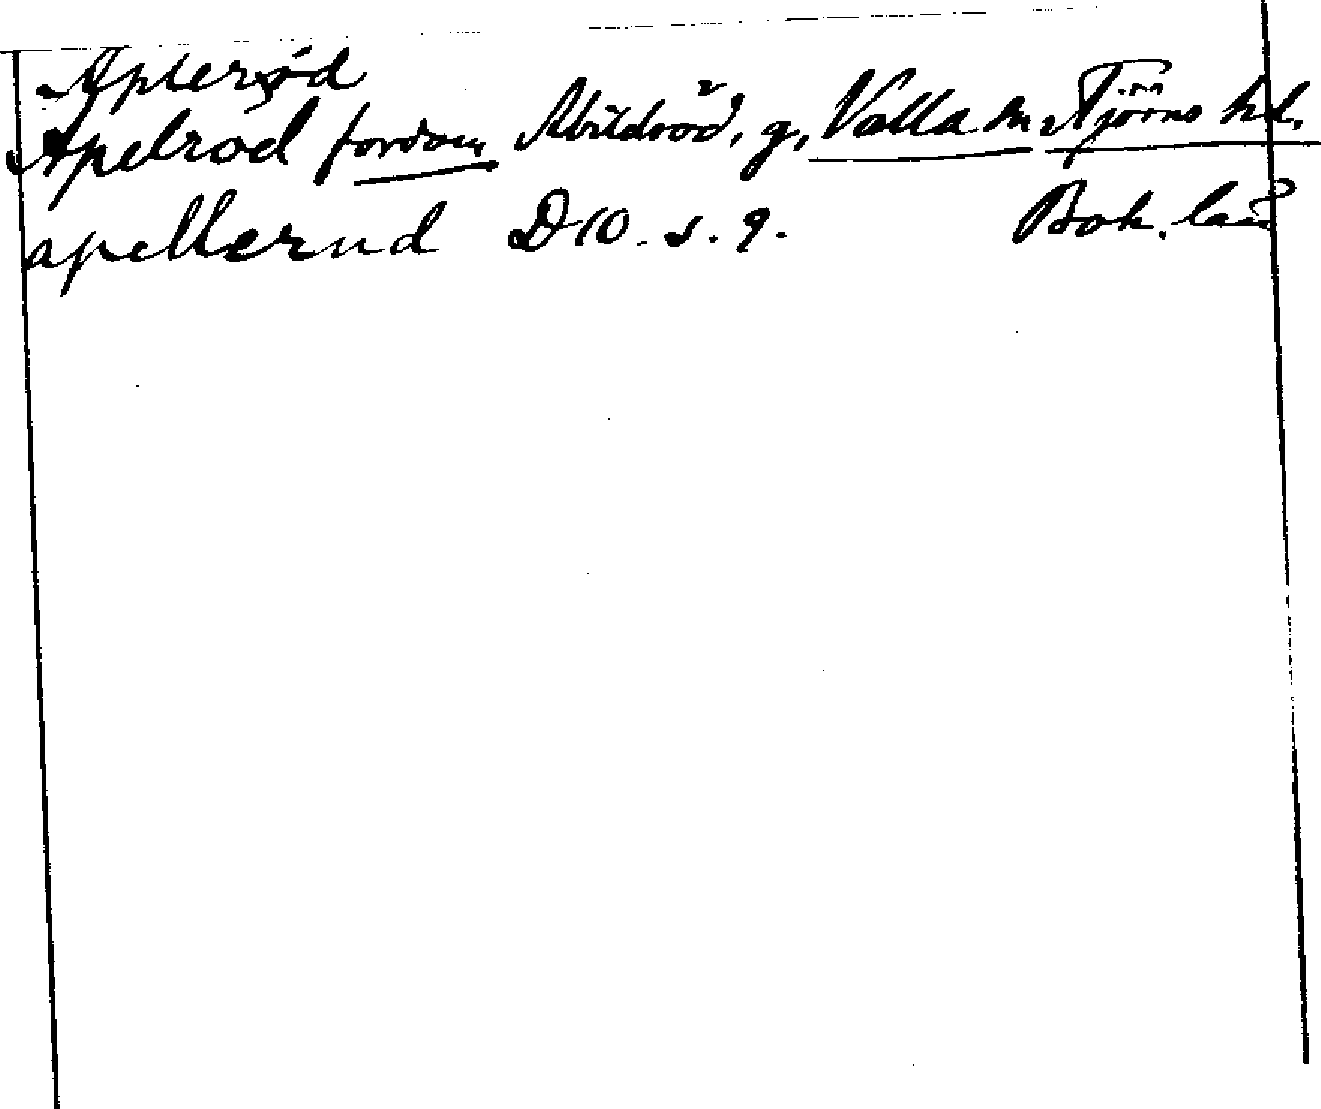 Aplerød
Apelrod fordom Abildröd, g, Valla sn, Tjörns hd.
apellerud D 10. s. 9. Boh. län